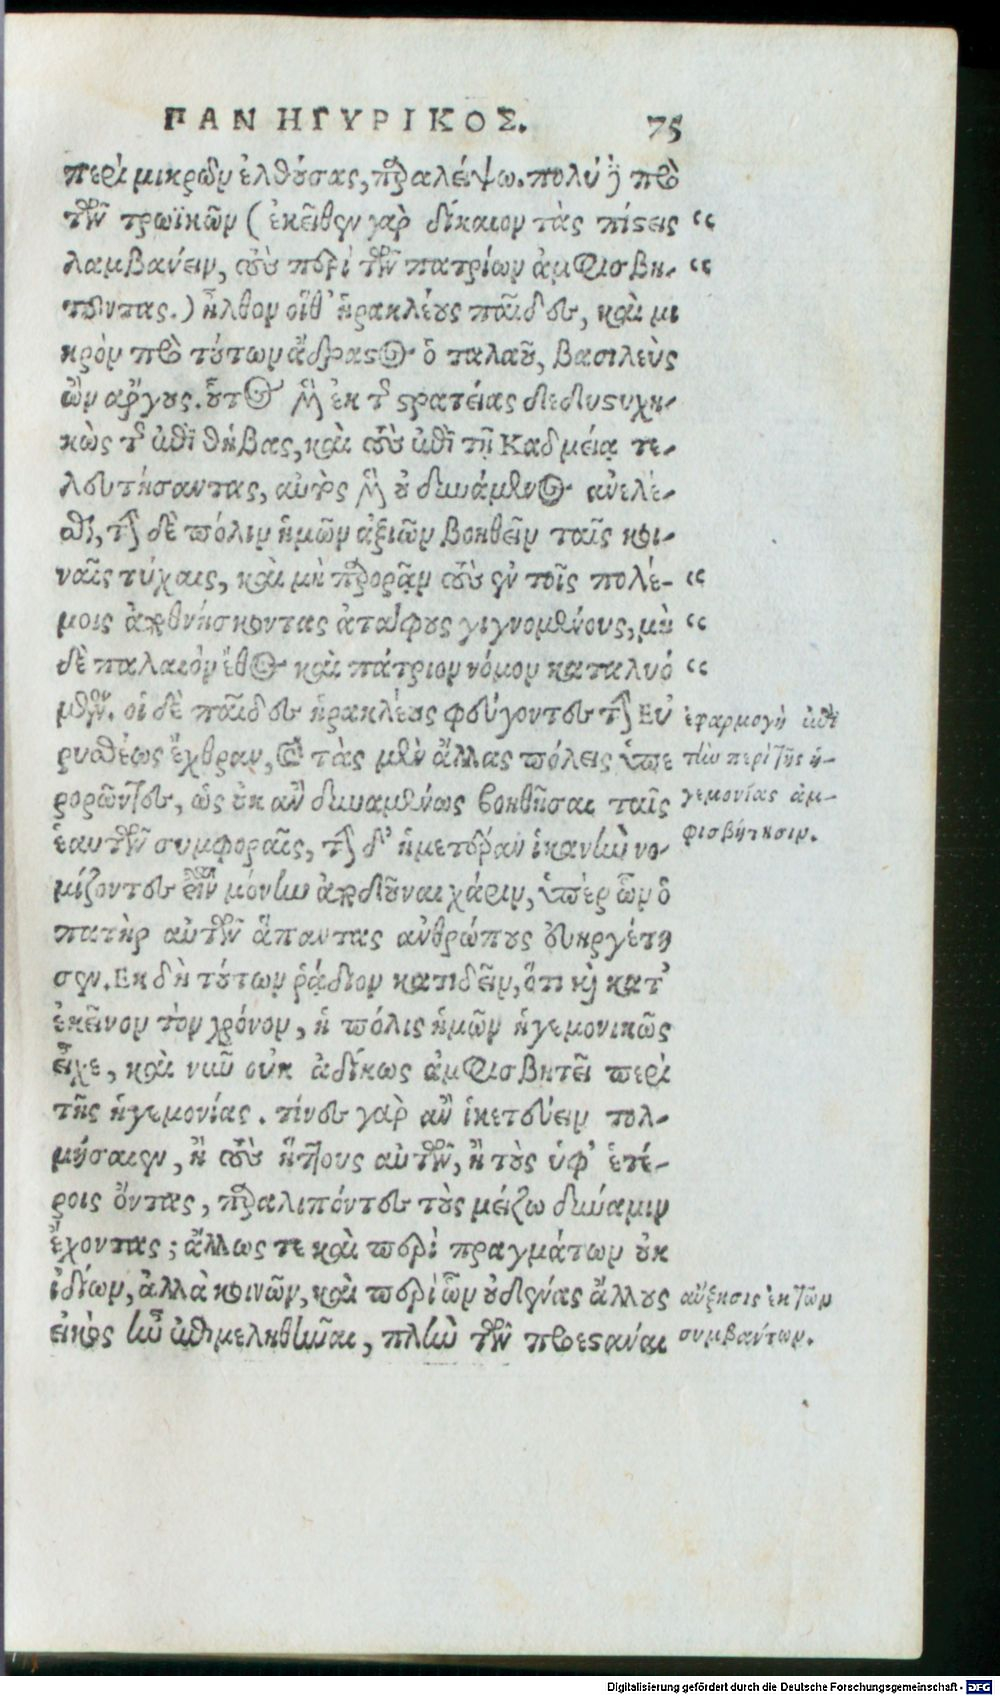 ΠΑΝΗΓΥΡΙΚΟΣ. 75
περὶ μικρῶν ἐλθούσας, παραλείψω. πολὺ δὲ πρὸ
τῶν τρωϊκῶν (ἐκεῖθεν γὰρ δίκαιον τὰς πίστεις “
λαμβάνειν, τοὺς περὶ τῶν πατρίων ἀμφισβη- “
τοῦντας.) ἦλθον οἵθ' ἡρακλέους παῖδες, καὶ μι
κρὸν πρὸ τούτων ἄδραστος ὁ ταλαοῦ, βασιλεὺς
ὢν ἄργους. οὗτος μὲν ἐκ τῆς στρατείας δεδυστυχη-
κὼς τῆς ἐπὶ θήβας, καὶ τοὺς ἐπὶ τῇ Καδμείᾳ τε-
λευτήσαντας, αὐτὸς μὲν οὐ δυνάμενος ἀνελέ-
σθαι, τὴν δὲ πόλιν ἡμῶν ἀξιῶν βοηθεῖν ταῖς κοι-
ναῖς τύχαις, καὶ μὴ παρορᾷν τοὺς ἐν τοῖς πολέ- “
μοις ἀποθνήσκοντας ἀτάφους γιγνομένους, μὴ “
δὲ παλαιὸν ἔθος καὶ πάτριον νόμον καταλυό “
μενον. οἱ δὲ παῖδες ἡρακλέους φεύγοντες τὴν Εὐ
ρυσθέως ἔχθραν, καὶ τὰς μὲν ἄλλας πόλεις ὑπε
ρορῶντες, ὡς οὐκ ἂν δυναμένως βοηθῆσαι ταῖς
ἑαυτῶν συμφοραῖς, τὴν δ' ἡμετέραν ἱκανὴν νο-
μίζοντες εἶναι μόνην ἀποδοῦναι χάριν, ὑπὲρ ὧν ὁ
πατὴρ αὐτῶν ἅπαντας ἀνθρώπους εὐηργέτη
σεν. Εκ δὴ τούτων ῥᾴδιον κατιδεῖν, ὅτι καὶ κατ'
ἐκεῖνον τὸν χρόνον, ἡ πόλις ἡμῶν ἡγεμονικῶς
εἶχε, καὶ νῦν οὐκ ἀδίκως ἀμφισβητεῖ περὶ
τῆς ἡγεμονίας. τίνες γὰρ ἂν ἱκετεύειν τολ-
μήσαιεν, ἢ τοὺς ἥττους αὐτῶν, ἢ τοὺς ὑφ' ἑτέ-
ροις ὄντας, παραλιπόντες τοὺς μείζω δύναμιν
ἔχοντας; ἄλλως τε καὶ περὶ πραγμάτων οὐκ
ἰδίων, ἀλλὰ κοινῶν, καὶ περὶ ὧν οὐδένας ἄλλους
εἰκὸς ἦν ἐπιμεληθῆναι, πλὴν τῶν προεστάναι
ἐφαρμογὴ ἐπὶ
τὴν περὶ τῆς ἡ-
γεμονίας ἀμ-
φισβήτησιν.
αὔξησις ἐκ τῶν
συμβάντων.
Digitalisierung gefördert durch die Deutsche Forschungsgemeinschaft - DFG